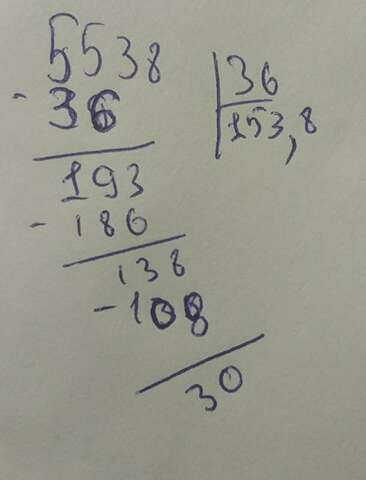 5538
36
- 36
153,8
193
- 186
138
- 108
30